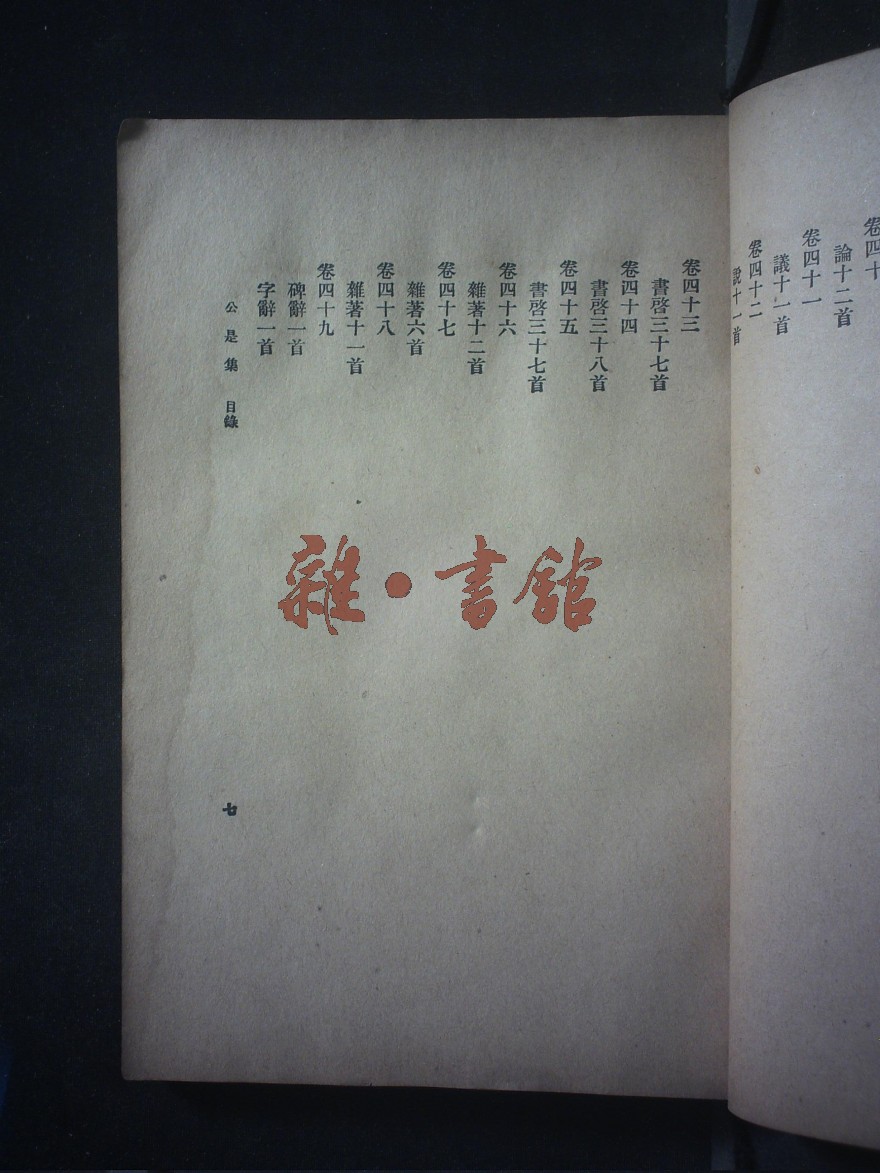 卷四十
論十二首
卷四十一
議十一首
卷四十二
說十一首
卷四十三
書啓三十七首
卷四十四
書啓三十八首
卷四十五
書啓三十七首
卷四十六
雜著十二首
卷四十七
雜著六首
卷四十八
雜著十一首
卷四十九
碑辭一首
字辭一首
公是集 目錄
七
雜·書館